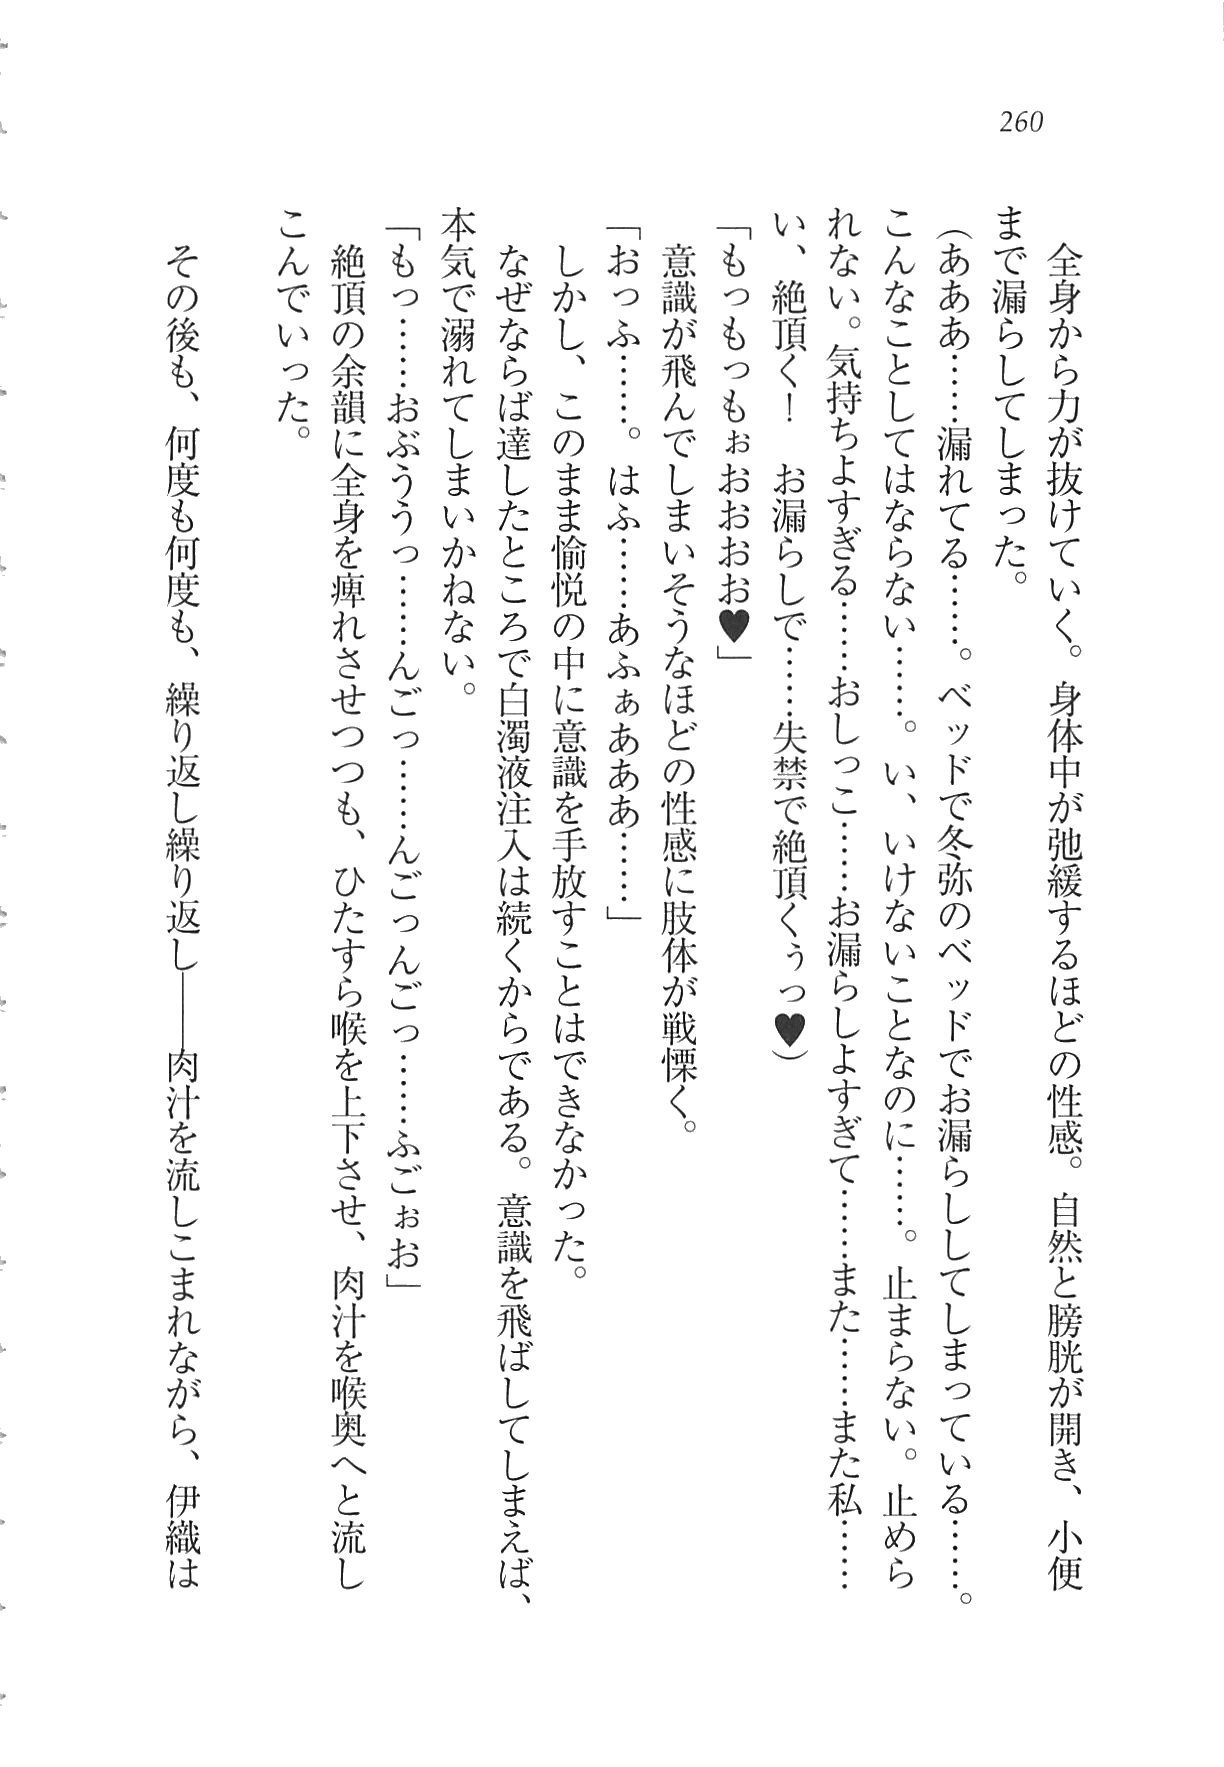 260
　全身から力が抜けていく。身体中が弛緩するほどの性感。自然と膀胱が開き、小便
まで漏らしてしまった。
（あああ……漏れてる……。ベッドで冬弥のベッドでお漏らししてしまっている……。
こんなことしてはならない……。い、いけないことなのに……。止まらない。止めら
れない。気持ちよすぎる……おしっこ……お漏らしよすぎて……また……また私……
い、絶頂く！　お漏らしで……失禁で絶頂くぅっ♥）
「もっもっもぉおおおお♥」
　意識が飛んでしまいそうなほどの性感に肢体が戦慄く。
「おっふ……。はふ……あふぁあああ……」
　しかし、このまま愉悦の中に意識を手放すことはできなかった。
　なぜならば達したところで白濁液注入は続くからである。意識を飛ばしてしまえば、
本気で溺れてしまいかねない。
「もっ……おぶううっ……んごっ……んごっんごっ……ふごぉお」
　絶頂の余韻に全身を痺れさせつつも、ひたすら喉を上下させ、肉汁を喉奥へと流し
こんでいった。
　その後も、何度も何度も、繰り返し繰り返し――肉汁を流しこまれながら、伊織は